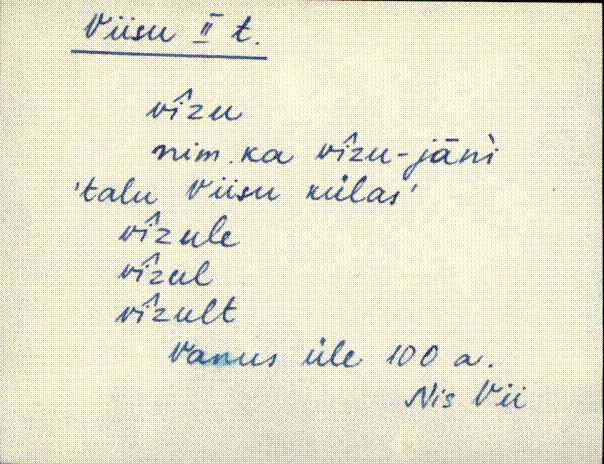 Viisu II t.
vîzu
nim. ka vîzu-jāǹi
'talu Viisu külas'
vîzule
vîzul
vîzult
Vanus üle 100 a.
Nis Vii